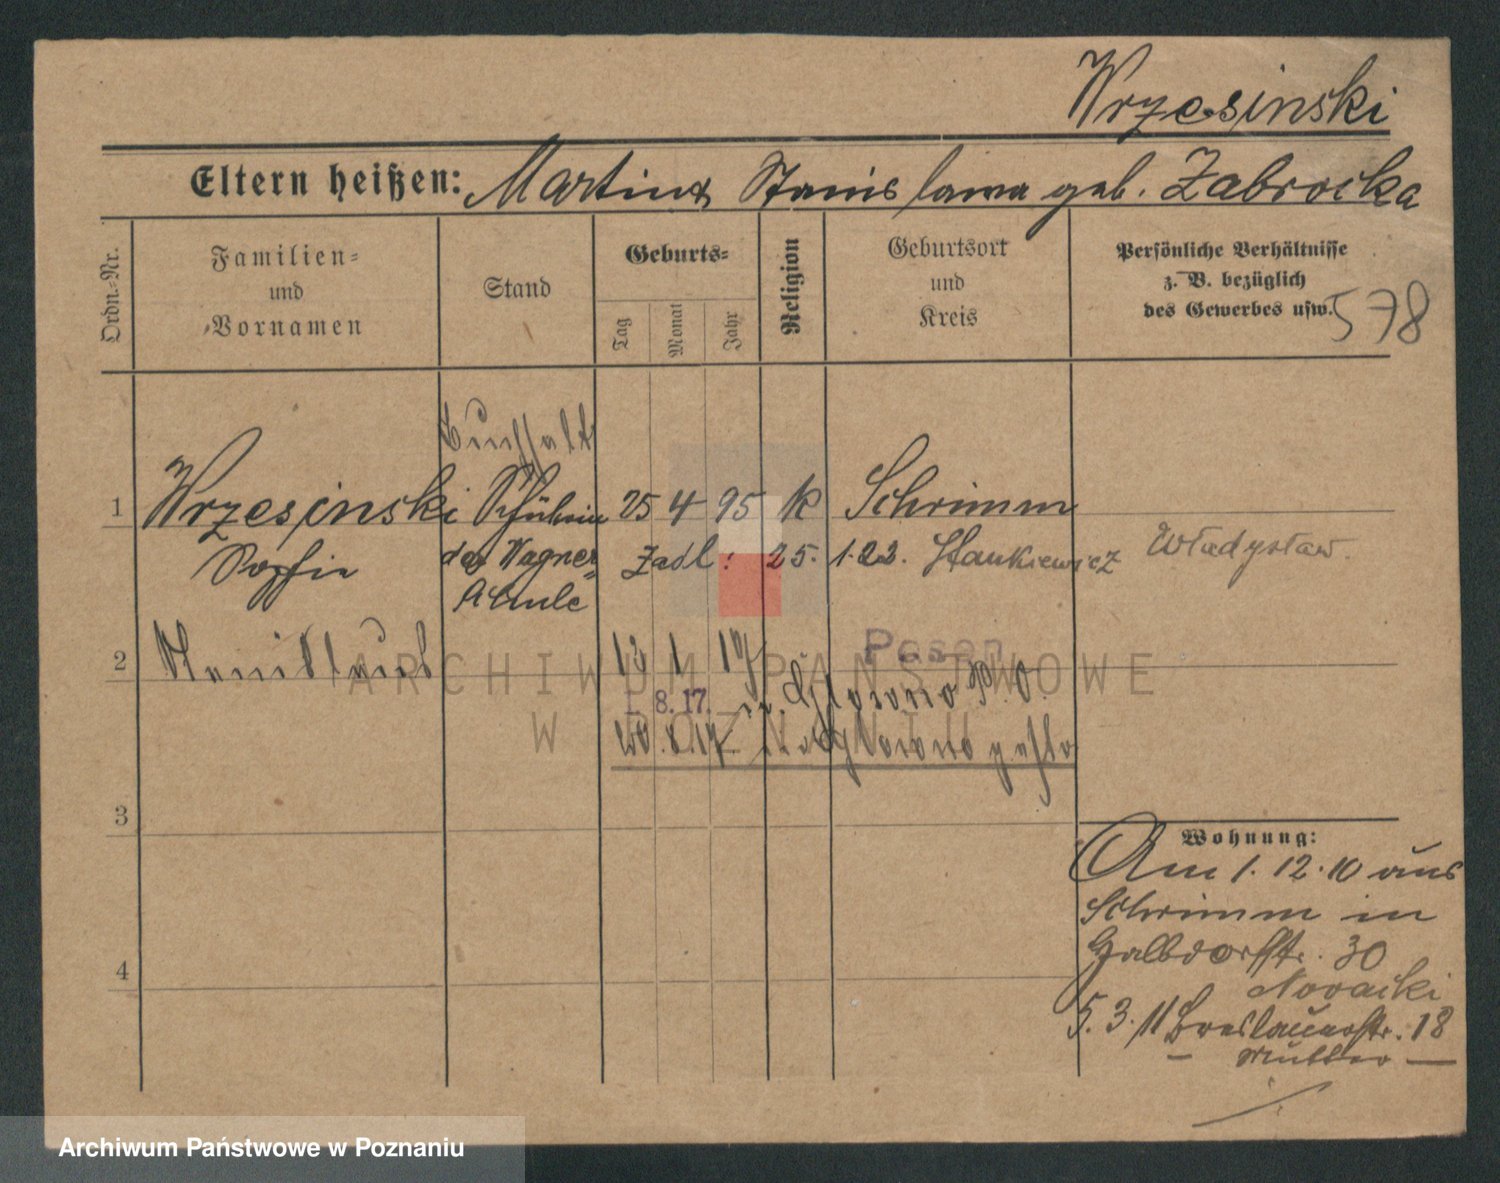 Wrzesinski
Eltern heißen: Martin Stanislawa geb. Zabrocka
Ordn.=Nr.
Familien=
und
Vornamen
Stand
Geburts=
Tag
Monat
Jahr
Religion
Geburtsort
und
Kreis
Persönliche Verhältnisse
z. B. bezüglich
des Gewerbes usw.
578
Buchhalt
1 Wrzesinski Schülerin 25 4 95 k Schrimm
Sophie der Wagner= Zadl: 25. 1.23. Stankiewicz Władysław.
Schule
2 Stanislaus 13 1 17 Posen
1. 8. 17.
20. 8. 17
3
4
Wohnung:
Am 1.12.10 aus
Schrimm in
Halbdorfstr. 30
Novacki
5.3.11 Breslauerstr. 18
– Mutter –
ARCHIWUM PAŃSTWOWE
W POZNANIU
Archiwum Państwowe w Poznaniu